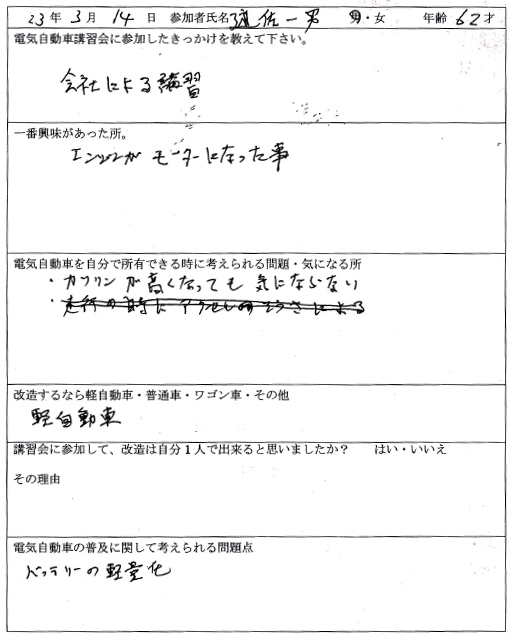 23年 3月 14日 参加者氏名 佐一男 男・女 年齢 62才
電気自動車講習会に参加したきっかけを教えて下さい。
会社による講習
一番興味があった所。
エンジンが モーターになった事
電気自動車を自分で所有できる時に考えられる問題・気になる所
・ガソリンが高くなっても 気にならない
・走行の時に アクセルの による
改造するなら軽自動車・普通車・ワゴン車・その他
軽自動車
講習会に参加して、改造は自分1人で出来ると思いましたか？ はい・いいえ
その理由
電気自動車の普及に関して考えられる問題点
バッテリーの軽量化